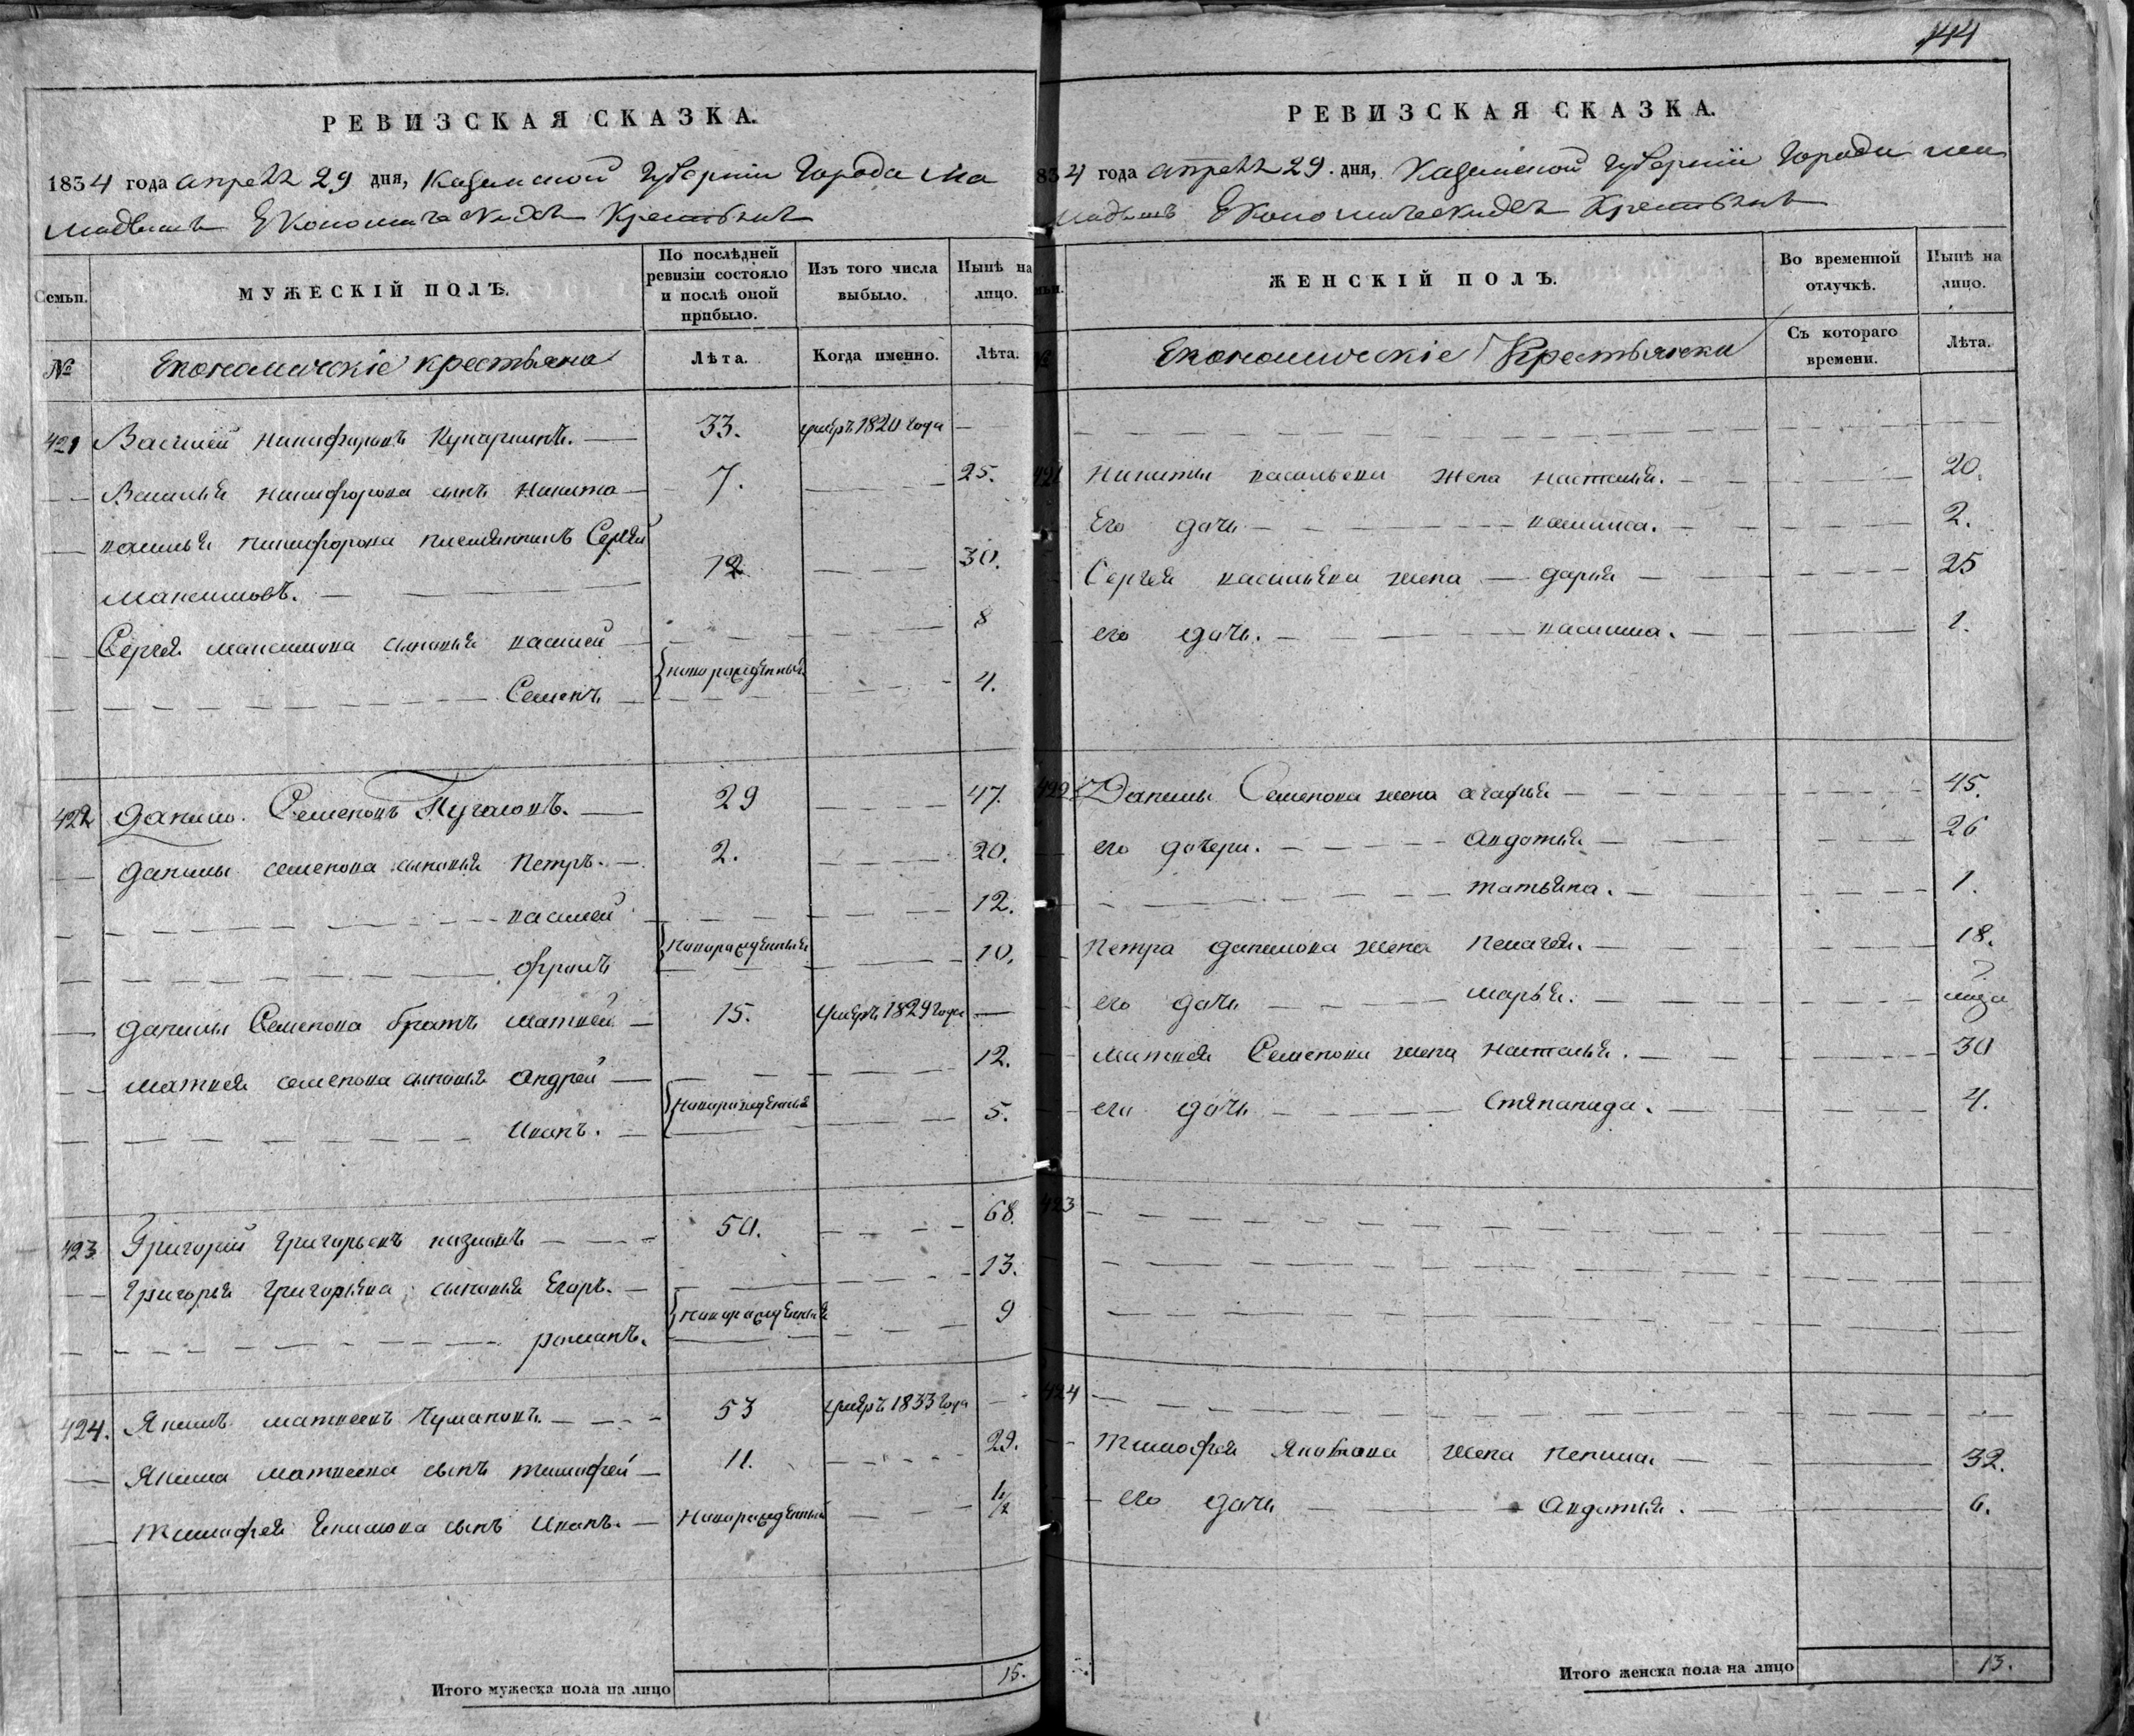 144
РЕВИЗСКАЯ СКАЗКА.
1834 года апреля 29 дня, Казанской Губернии Города Ма
мадыша Економическихъ Крестьянъ
Семьи.
МУЖЕСКІЙ ПОЛЪ.
По послѣдней ревизіи состояло и послѣ оной прибыло.
Изъ того числа выбыло.
Нынѣ на лицо.
№
Економическіе крестьяна
Лѣта.
Когда именно.
Лѣта.
421 Василей Никифоровъ 33. умеръ 1820 года —
Василья Никифорова сынъ Никита 7. 25.
Василья Никифорова племянникъ Сергей
Максимовъ. 12 30.
Сергея Максимова сыновья Василей 8
новорожденныя
Семенъ 4.
422 Данило Семеновъ Пугаловъ. 29 47.
Данилы Семенова сыновья Петръ. 2. 20.
Василей 12.
новорожденныя
Фролъ 10.
Данилы Семенова братъ Матвей 15. умеръ 1829 года —
Матвея Семенова сыновья Андрей 12.
новорожденныя
Иванъ. 5.
423 Григорий Григорьевъ 50. 68.
Григорья Григорьева сыновья Егоръ. 13.
новорожденныя
Романъ. 9
424. Якимъ Матвеевъ Чумаковъ. 53 умеръ 1833 года —
Якима Матвеева сынъ Тимофей 11. 29.
Тимофея Якимова сынъ Иванъ. новорожденный 1/2
Итого мужеска пола на лицо 15.
РЕВИЗСКАЯ СКАЗКА.
834 года апреля 29. дня, Казанской Губернии Города Ма
мадыша Економическихъ Крестьянъ
ЖЕНСКІЙ ПОЛЪ.
Во временной отлучкѣ.
Нынѣ на лицо.
№
Економическіе Крестьянки
Съ котораго времени.
Лѣта.
421 Никиты Васильева жена Настасья. 20.
Его дочь Василиса. 2.
Сергея Васильева жена Дарья 25
его дочь. 1.
422 Данилы Семенова жена Агафья 45.
его дочери. Авдотья 26
Татьяна. 1.
Петра Данилова жена Пелагея. 18.
его дочь Марья.
Матвея Семенова жена Настасья. 30
его дочь Стяпанида. 4.
423
424
Тимофея Яковлева жена 32.
его дочь Авдотья. 6.
Итого женска пола на лицо 13.